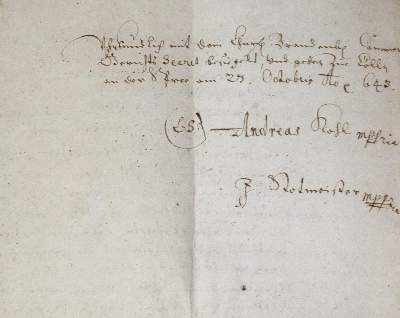 Uhrkundlich mit dem Churf. Brandenb. Cammer
Gerichts Secret besiegelt, Und geben zue Cölln
an der Spree am 23. Octobris Ao 643.
(LS.) Andreas Kohl mppria
F. Rotmeister mppria